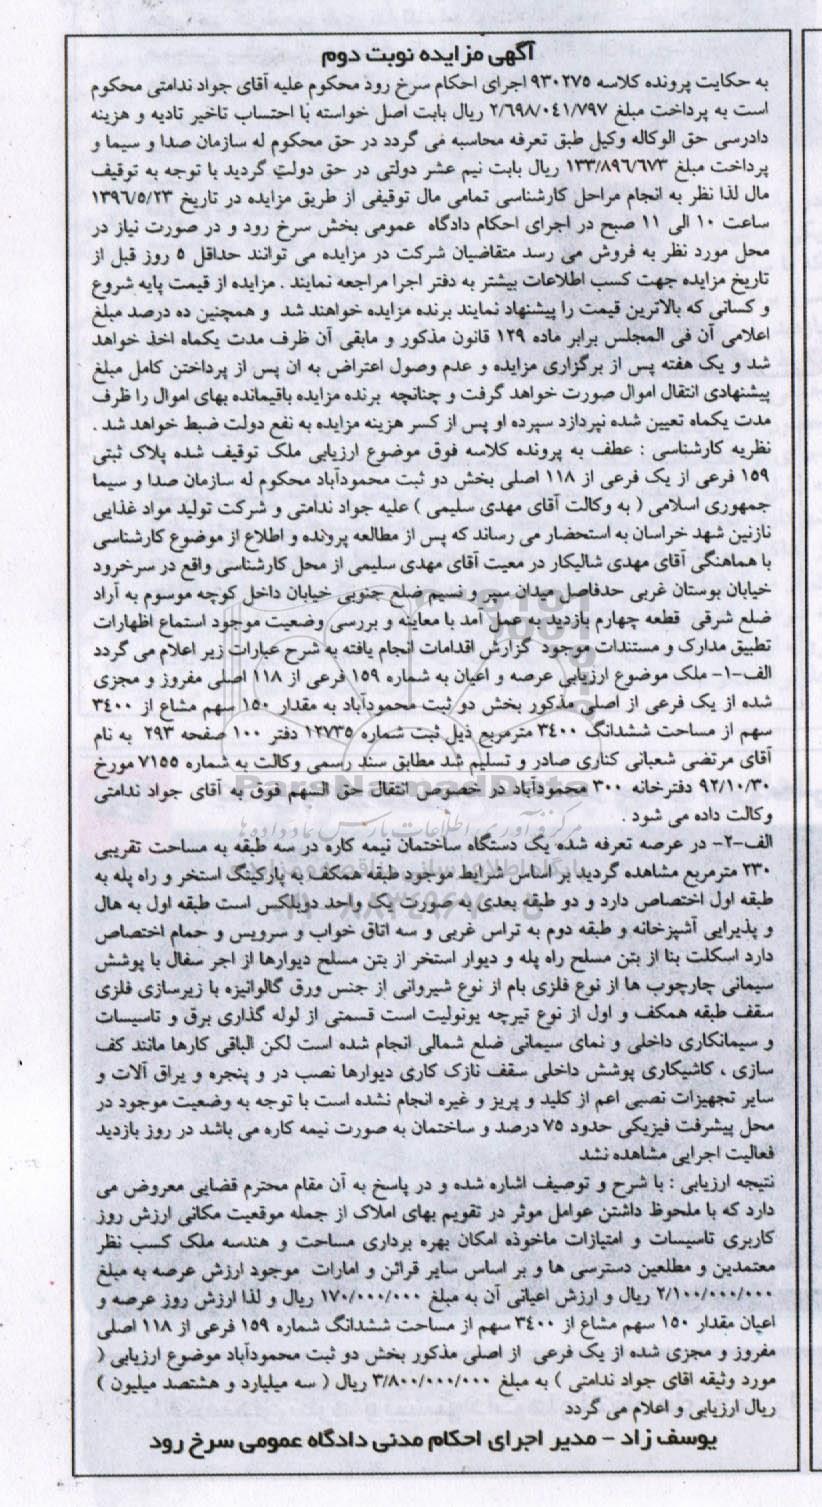 آگهی مزایده نوبت دوم
به حکایت پرونده کلاسه ۹۳۰۲۷۵ اجرای احکام سرخ رود محکوم علیه آقای جواد ندامتی محکوم
است به پرداخت مبلغ ۲/۶۹۸/۰۴۱/۷۹۷ ریال بابت اصل خواسته با احتساب تاخیر تادیه و هزینه
دادرسی حق الوکاله وکیل طبق تعرفه محاسبه می گردد در حق محکوم له سازمان صدا و سیما و
پرداخت مبلغ ۱۳۳/۸۹۶/۶۷۳ ریال بابت نیم عشر دولتی در حق دولت گردید با توجه به توقیف
مال لذا نظر به انجام مراحل کارشناسی تمامی مال توقیفی از طریق مزایده در تاریخ ۱۳۹۶/۵/۲۳
ساعت ۱۰ الی ۱۱ صبح در اجرای احکام دادگاه عمومی بخش سرخ رود و در صورت نیاز در
محل مورد نظر به فروش می رسد متقاضیان شرکت در مزایده می توانند حداقل ۵ روز قبل از
تاریخ مزایده جهت کسب اطلاعات بیشتر به دفتر اجرا مراجعه نمایند . مزایده از قیمت پایه شروع
و کسانی که بالاترین قیمت را پیشنهاد نمایند برنده مزایده خواهند شد و همچنین ده درصد مبلغ
اعلامی آن فی المجلس برابر ماده ۱۲۹ قانون مذکور و مابقی آن ظرف مدت یکماه اخذ خواهد
شد و یک هفته پس از برگزاری مزایده و عدم وصول اعتراض به ان پس از پرداختن کامل مبلغ
پیشنهادی انتقال اموال صورت خواهد گرفت و چنانچه برنده مزایده باقیمانده بهای اموال را ظرف
مدت یکماه تعیین شده نپردازد سپرده او پس از کسر هزینه مزایده به نفع دولت ضبط خواهد شد .
نظریه کارشناسی : عطف به پرونده کلاسه فوق موضوع ارزیابی ملک توقیف شده پلاک ثبتی
۱۵۹ فرعی از یک فرعی از ۱۱۸ اصلی بخش دو ثبت محمودآباد محکوم له سازمان صدا و سیما
جمهوری اسلامی ( به وکالت آقای مهدی سلیمی ) علیه جواد ندامتی و شرکت تولید مواد غذایی
نازنین شهد خراسان به استحضار می رساند که پس از مطالعه پرونده و اطلاع از موضوع کارشناسی
با هماهنگی آقای مهدی شالیکار در معیت آقای مهدی سلیمی از محل کارشناسی واقع در سرخرود
خیابان بوستان غربی حدفاصل میدان سپر و نسیم ضلع جنوبی خیابان داخل کوچه موسوم به آراد
ضلع شرقی قطعه چهارم بازدید به عمل آمد با معاینه و بررسی وضعیت موجود استماع اظهارات
تطبیق مدارک و مستندات موجود گزارش اقدامات انجام یافته به شرح عبارات زیر اعلام می گردد
الف-۱- ملک موضوع ارزیابی عرصه و اعیان به شماره ۱۵۹ فرعی از ۱۱۸ اصلی مفروز و مجزی
شده از یک فرعی از اصلی مذکور بخش دو ثبت محمودآباد به مقدار ۱۵۰ سهم مشاع از ۳۴۰۰
سهم از مساحت ششدانگ ۳۴۰۰ مترمربع ذیل ثبت شماره ۱۲۷۳۵ دفتر ۱۰۰ صفحه ۲۹۳ به نام
آقای مرتضی شعبانی کناری صادر و تسلیم شد مطابق سند رسمی وکالت به شماره ۷۱۵۵ مورخ
۹۲/۱۰/۳۰ دفترخانه ۳۰۰ محمودآباد در خصوص انتقال حق السهم فوق به آقای جواد ندامتی
وکالت داده می شود .
الف-۲- در عرصه تعرفه شده یک دستگاه ساختمان نیمه کاره در سه طبقه به مساحت تقریبی
۲۳۰ مترمربع مشاهده گردید بر اساس شرایط موجود طبقه همکف به پارکینگ استخر و راه پله به
طبقه اول اختصاص دارد و دو طبقه بعدی به صورت یک واحد دوبلکس است طبقه اول به هال
و پذیرایی آشپزخانه و طبقه دوم به تراس غربی و سه اتاق خواب و سرویس و حمام اختصاص
دارد اسکلت بنا از بتن مسلح راه پله و دیوار استخر از بتن مسلح دیوارها از اجر سفال با پوشش
سیمانی چارچوب ها از نوع فلزی بام از نوع شیروانی از جنس ورق گالوانیزه با زیرسازی فلزی
سقف طبقه همکف و اول از نوع تیرچه یونولیت است قسمتی از لوله گذاری برق و تاسیسات
و سیمانکاری داخلی و نمای سیمانی ضلع شمالی انجام شده است لکن الباقی کارها مانند کف
سازی ، کاشیکاری پوشش داخلی سقف نازک کاری دیوارها نصب در و پنجره و یراق آلات و
سایر تجهیزات نصبی اعم از کلید و پریز و غیره انجام نشده است با توجه به وضعیت موجود در
محل پیشرفت فیزیکی حدود ۷۵ درصد و ساختمان به صورت نیمه کاره می باشد در روز بازدید
فعالیت اجرایی مشاهده نشد
نتیجه ارزیابی : با شرح و توصیف اشاره شده و در پاسخ به آن مقام محترم قضایی معروض می
دارد که با ملحوظ داشتن عوامل موثر در تقویم بهای املاک از جمله موقعیت مکانی ارزش روز
کاربری تاسیسات و امتیازات ماخوذه امکان بهره برداری مساحت و هندسه ملک کسب نظر
معتمدین و مطلعین دسترسی ها و بر اساس سایر قرائن و امارات موجود ارزش عرصه به مبلغ
۲/۱۰۰/۰۰۰/۰۰۰ ریال و ارزش اعیانی آن به مبلغ ۱۷۰/۰۰۰/۰۰۰ ریال و لذا ارزش روز عرصه و
اعیان مقدار ۱۵۰ سهم مشاع از ۳۴۰۰ سهم از مساحت ششدانگ شماره ۱۵۹ فرعی از ۱۱۸ اصلی
مفروز و مجزی شده از یک فرعی از اصلی مذکور بخش دو ثبت محمودآباد موضوع ارزیابی (
مورد وثیقه اقای جواد ندامتی ) به مبلغ ۳/۸۰۰/۰۰۰/۰۰۰ ریال ( سه میلیارد و هشتصد میلیون )
ریال ارزیابی و اعلام می گردد
یوسف زاد - مدیر اجرای احکام مدنی دادگاه عمومی سرخ رود
ParsNamadData